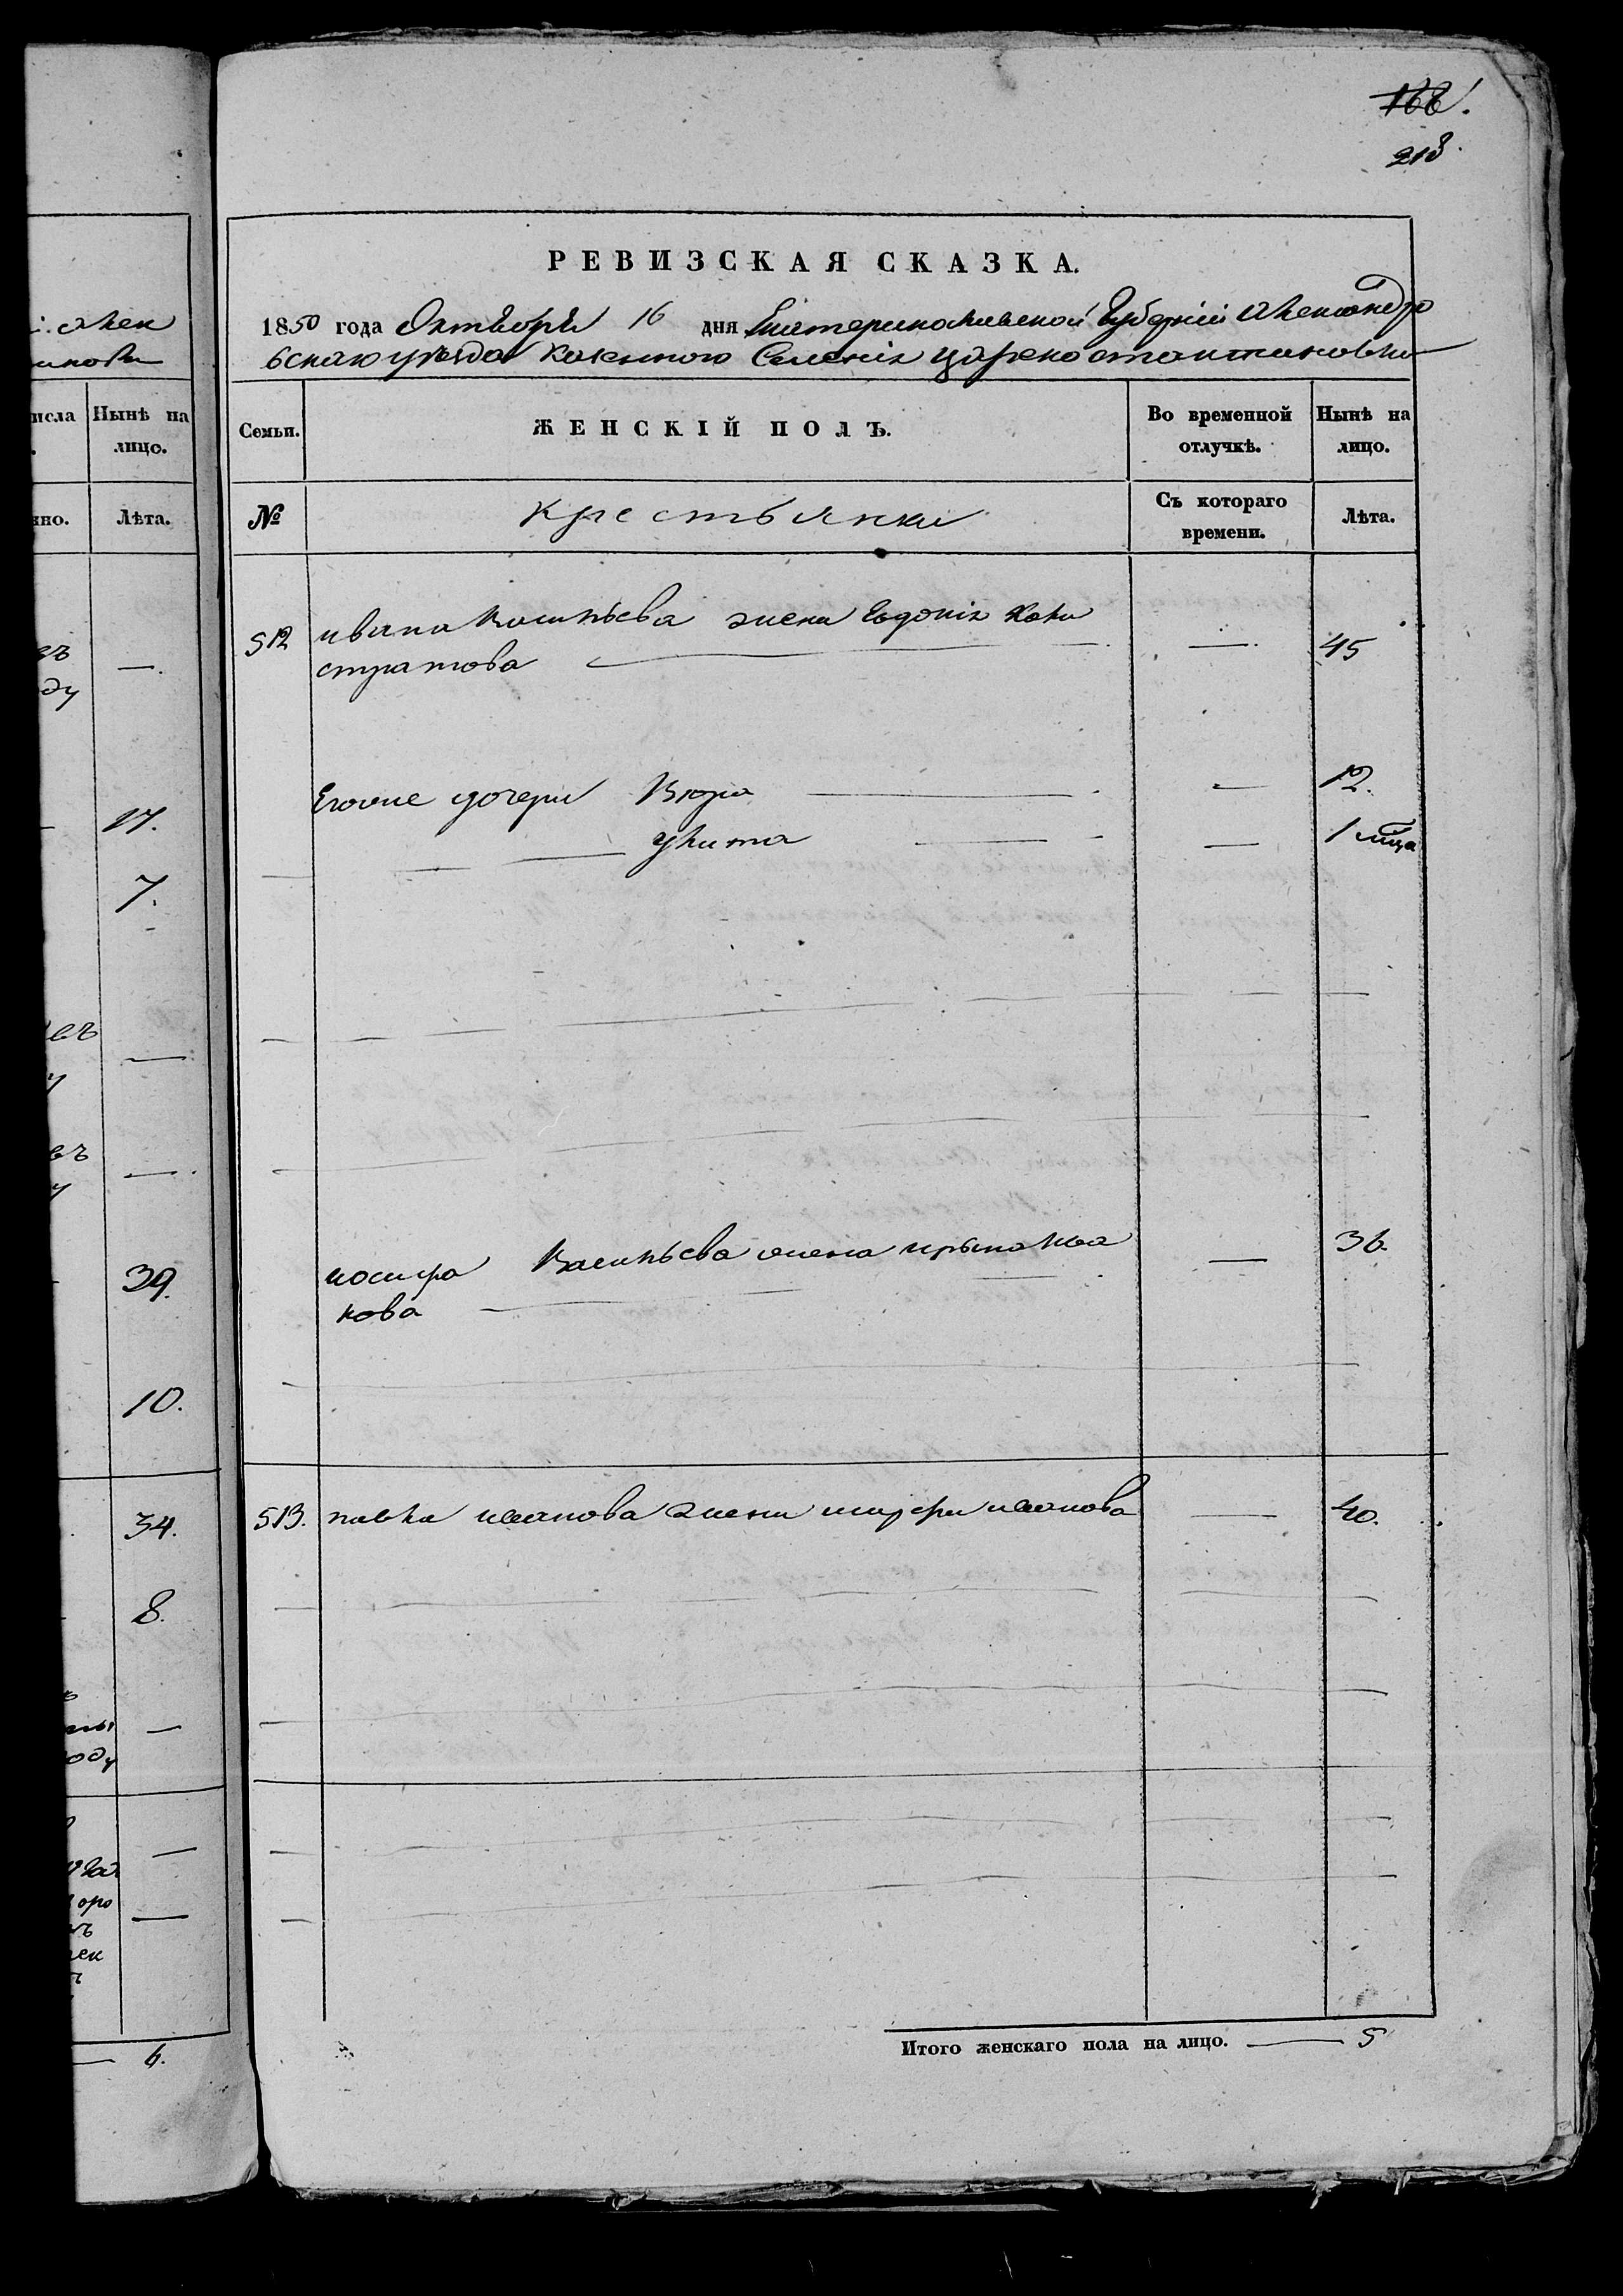 168.
213.
РЕВИЗСКАЯ СКАЗКА.
1850 года Октебря 16 дня Екатеринославской Губерніи Александро
вскаго уезда Казенного Селенія Цареконстантиновки
Семьи. ЖЕНСКІЙ ПОЛЪ. Во временной отлучкѣ. Нынѣ на лицо.
№ крестьянки Съ котораго времени. Лѣта.
512 ивана Васильева жена Евдокія Кали — 45
стратова
Еговые дочери — 12.
улита — 1 мца
Васильева жена — 36.
кова
513. павла иванова жена иванова — 40.
Итого женскаго пола на лицо. — 5
нынѣ на
лицо.
Лѣта.
—
17.
7.
—
—
39.
10.
34.
8.
—
—
—
6.